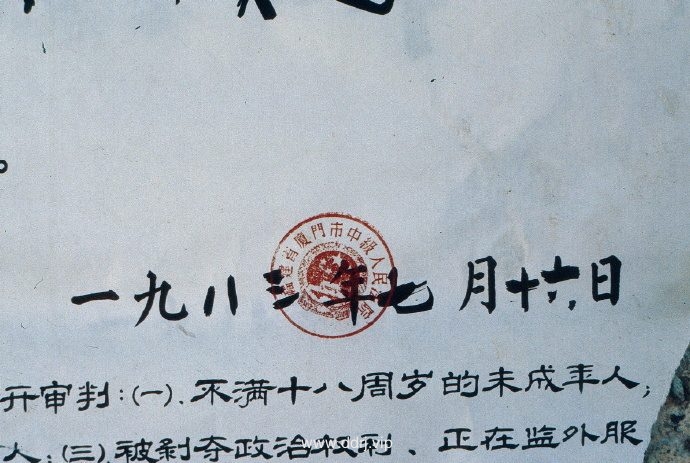 福建省厦門市中級人民法院
一九八三年七月十六日
开审判:(一).不满十八周岁的未成年人;
人;(三)被剥夺政治权利、正在监外服
www.ddcj.vip